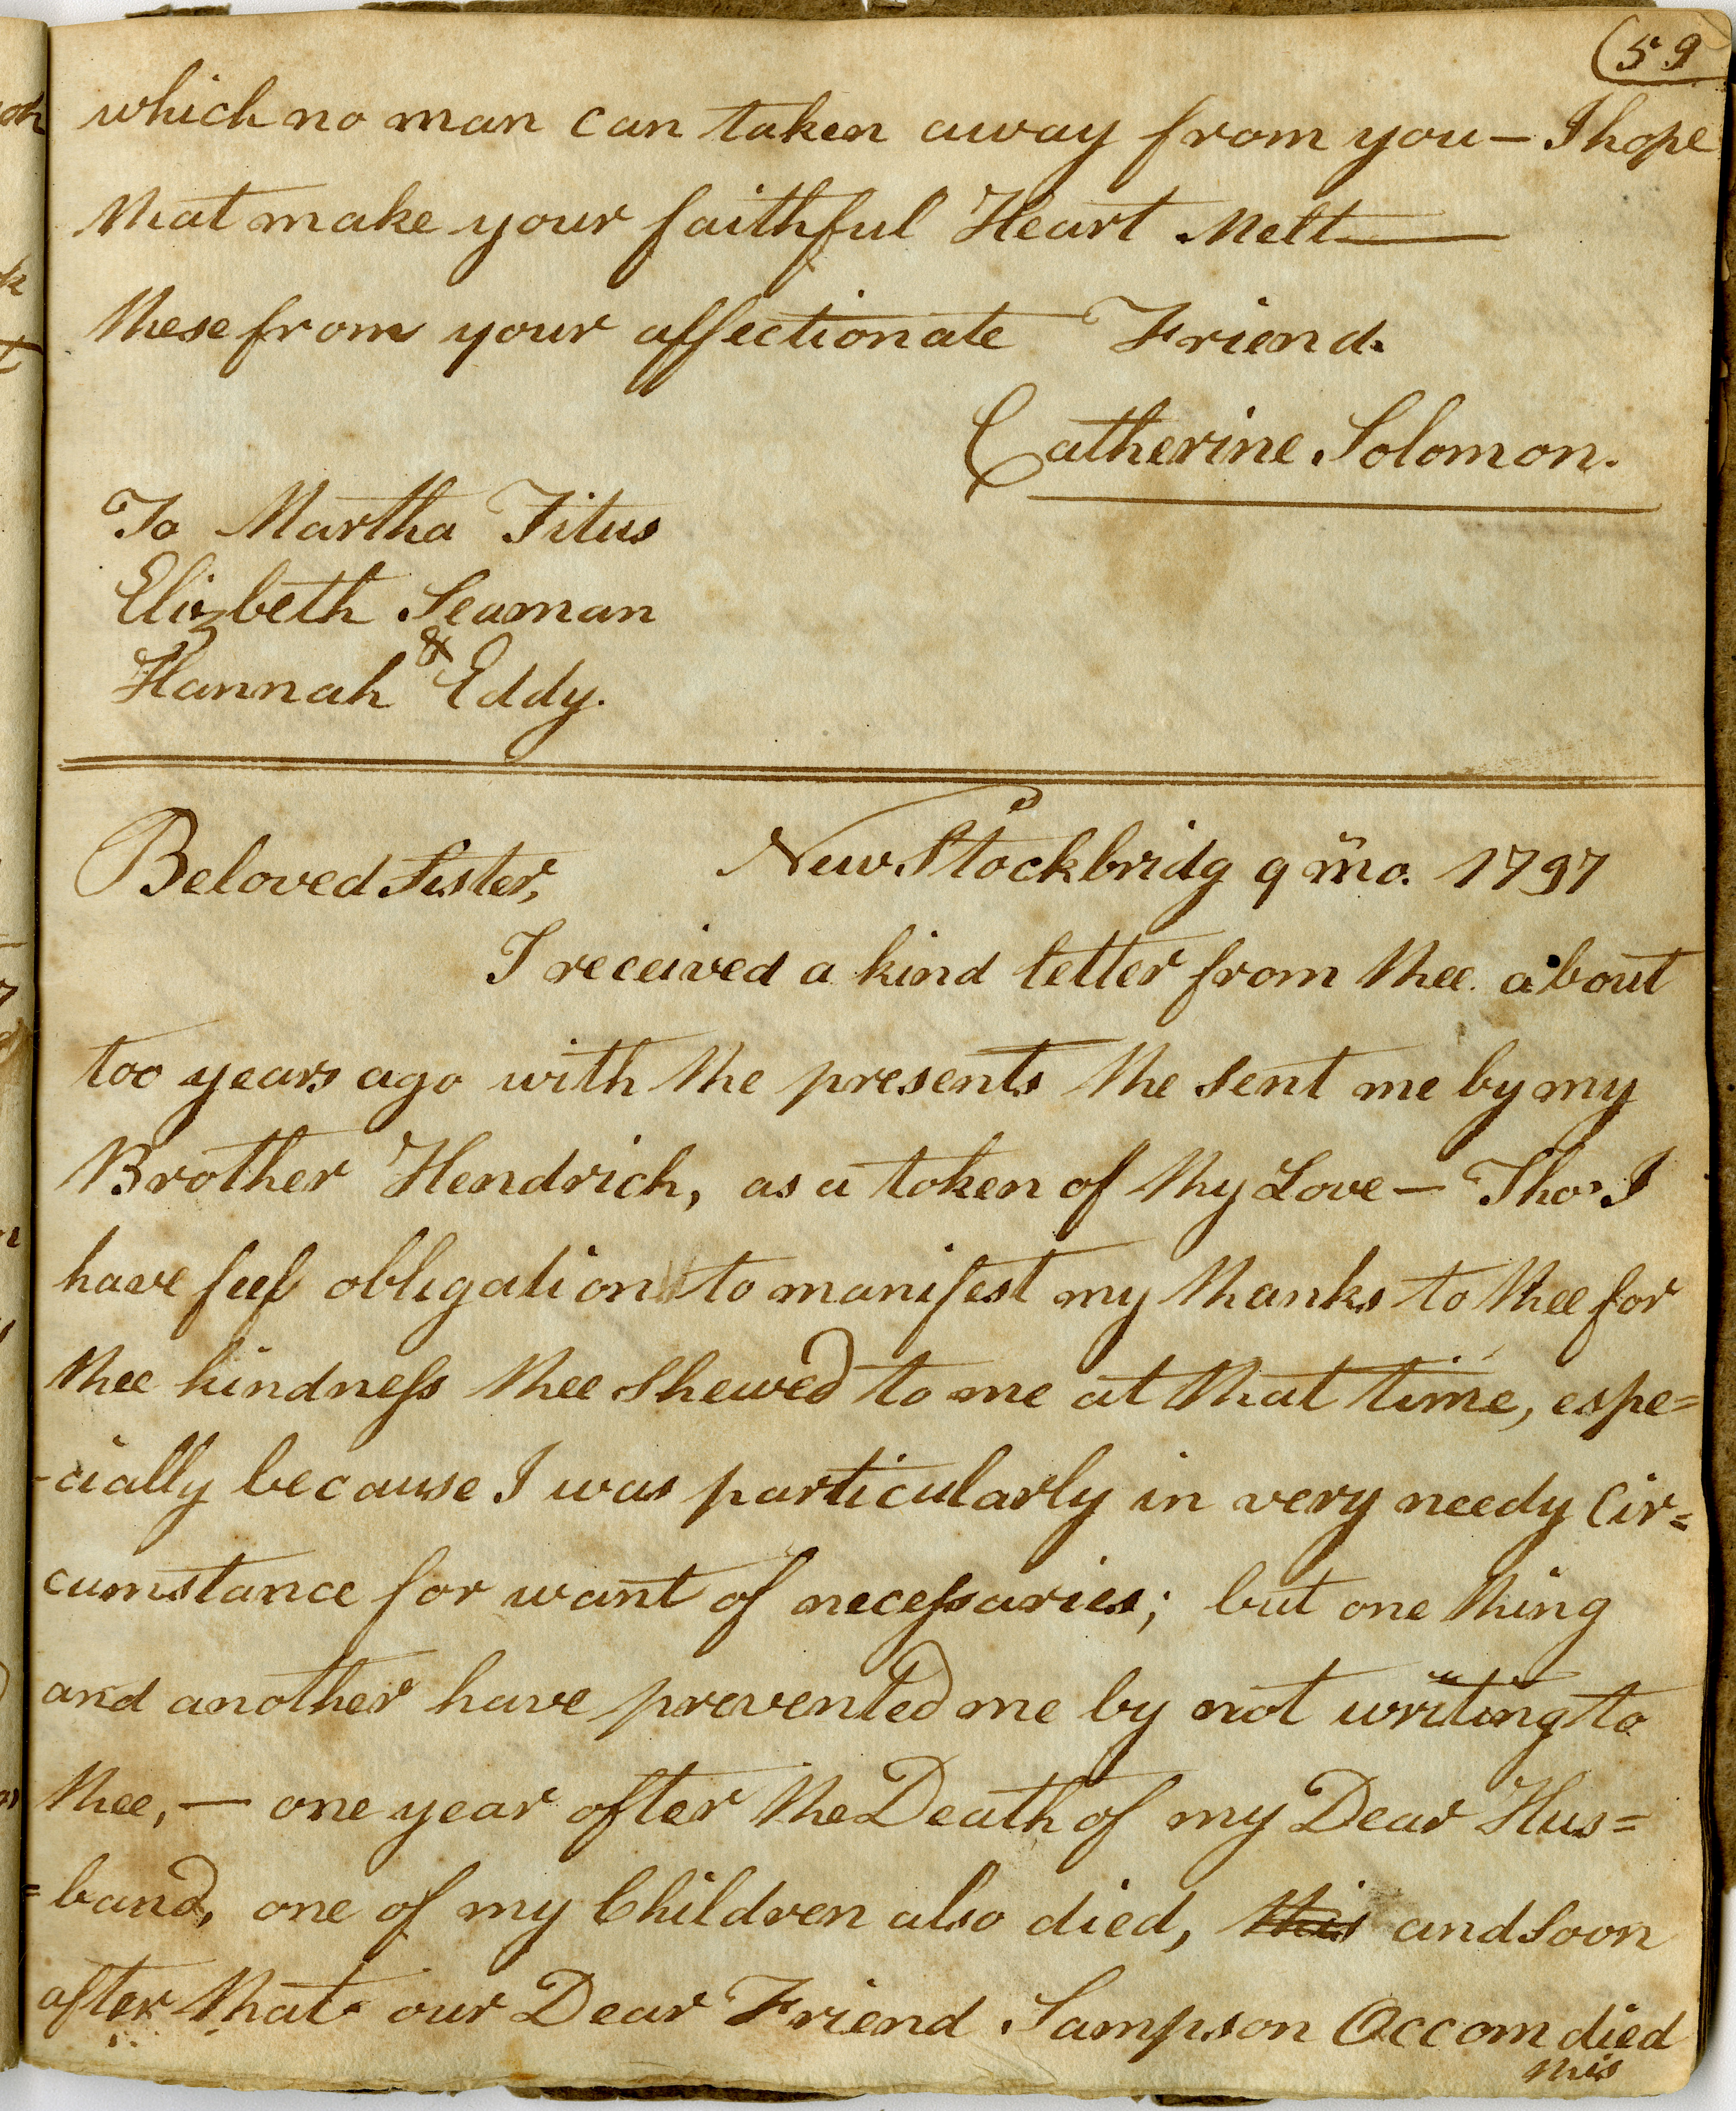 59
which no man can taken away from you — I hope
that make your faithful Heart Melt —
these from your affectionate Friend.
Catherine Solomon.
To Martha Titus
Elizbeth Seaman
&
Hannah Eddy.
New Stockbridg 9 mo. 1797
Beloved Sister,
I received a kind letter from thee about
too years ago with the presents the sent me by my
Brother Hendrich, as a token of thy Love — Tho' I
have feel obligation to manifest my thanks to thee for
thee kindness thee shewed to me at that time, espe=
-cially because I was particularly in very needy Cir=
cumstance for want of necessaries; but one thing
and another have prevented me by not writing to
thee, — one year after the Death of my Dear Hus=
=band, one of my Children also died, this and soon
after that our Dear Friend Sampson Occom died
this